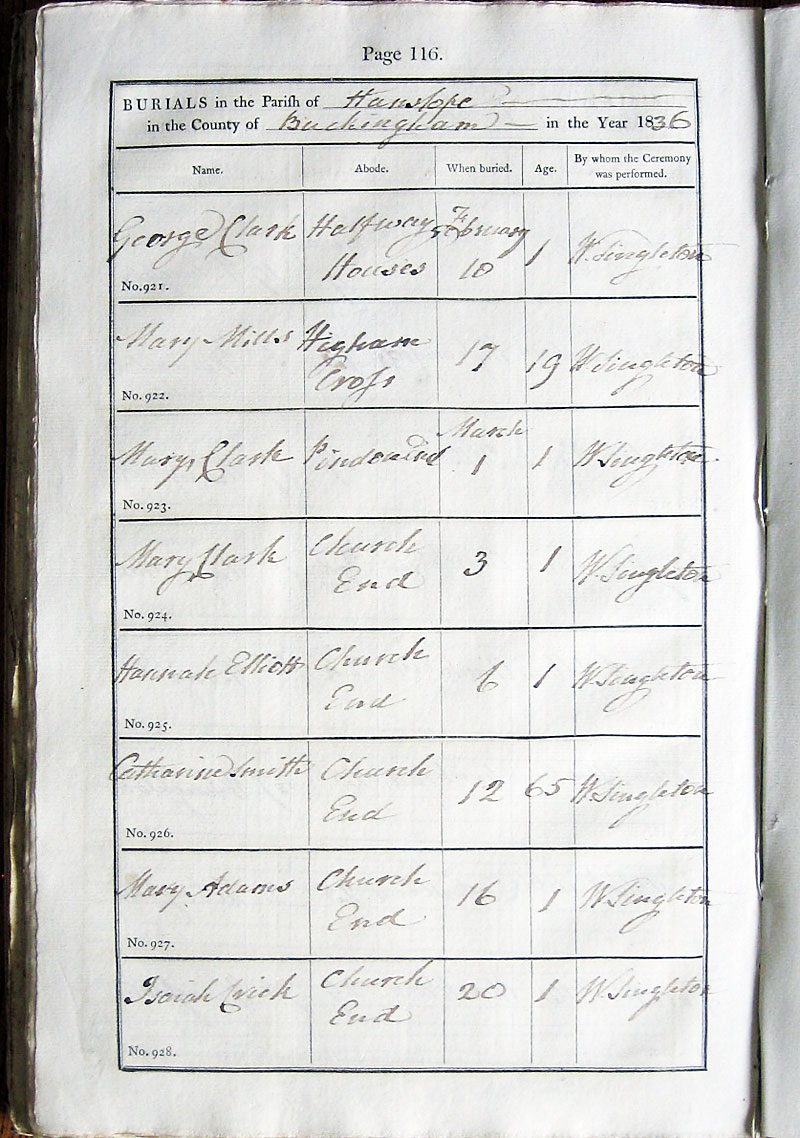 Page 116.
BURIALS in the Parish of Hanslope
in the County of Buckingham in the Year 1836
Name. Abode. When buried. Age. By whom the Ceremony was performed.
George Clark Halfway February
Houses 10 1 W. Singleton
No. 921.
Mary Mills Higham 17 19 W Singleton
Cross
No. 922.
March
Mary Clark 1 1 W Singleton
No. 923.
Mary Clark Church 3 1 W Singleton
End
No. 924.
Hannah Elliott Church 6 1 W Singleton
End
No. 925.
Catharine Smith Church 12 65 W. Singleton
End
No. 926.
Mary Adams Church 16 1 W Singleton
End
No. 927.
Isaiah Crick Church 20 1 W Singleton
End
No. 928.